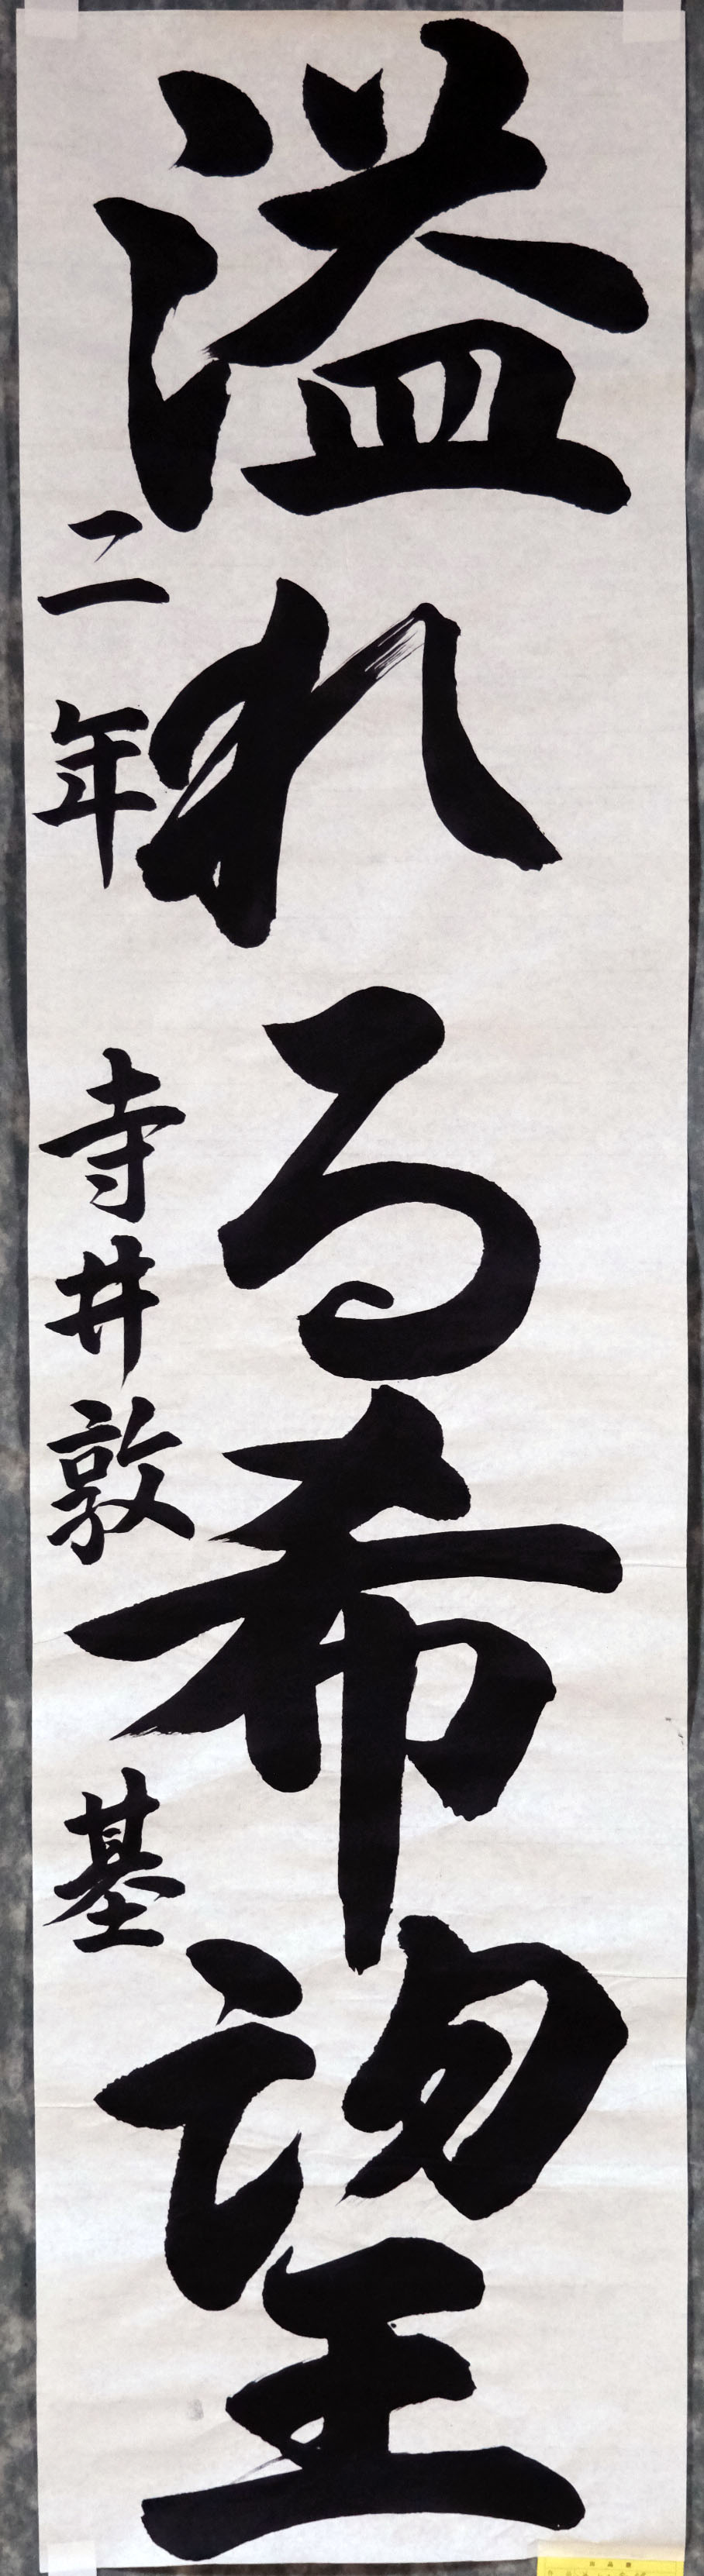 溢れる希望
二年 寺井敦基